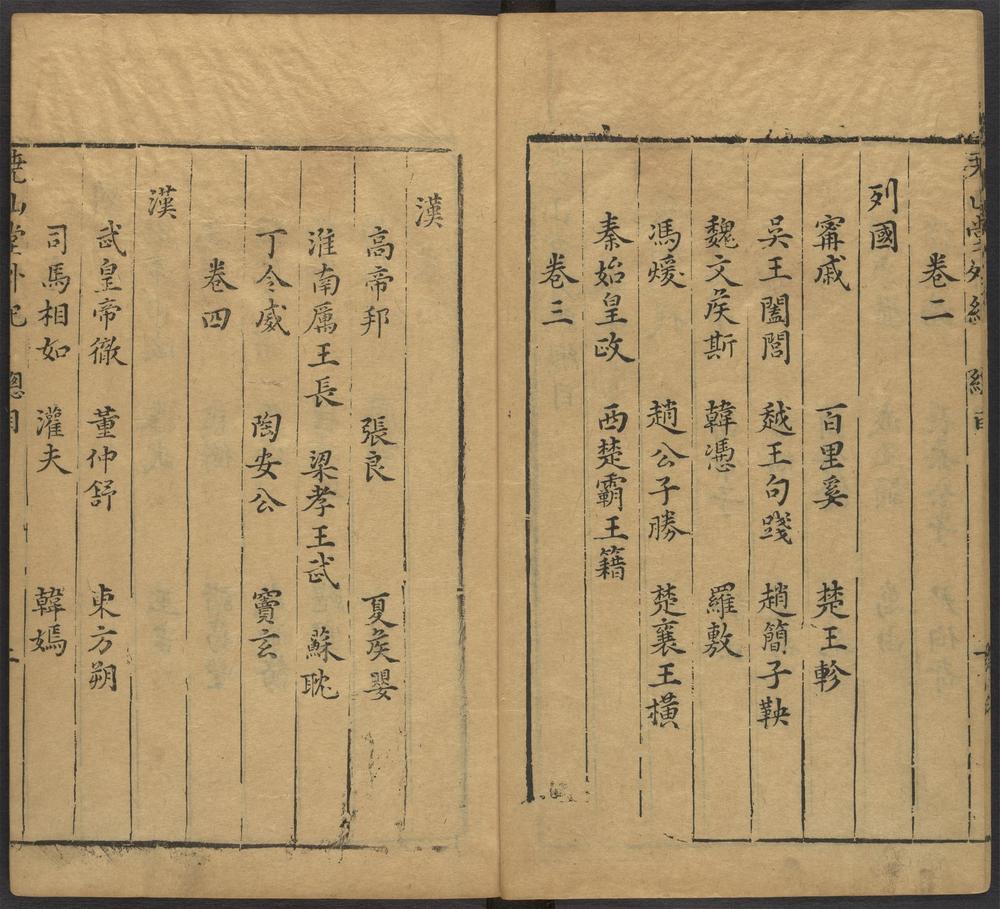 卷二
列國
甯戚 百里奚 楚王軫
吳王闔閭 越王句踐 趙簡子鞅
魏文侯斯 韓憑 羅敷
馮煖 趙公子勝 楚襄王橫
秦始皇政 西楚霸王籍
卷三
漢
高帝邦 張良 夏侯嬰
淮南厲王長 梁孝王武 蘇耽
丁令威 陶安公 竇玄
卷四
漢
武皇帝徹 董仲舒 東方朔
司馬相如 灌夫 韓嫣
堯山堂外紀 總目